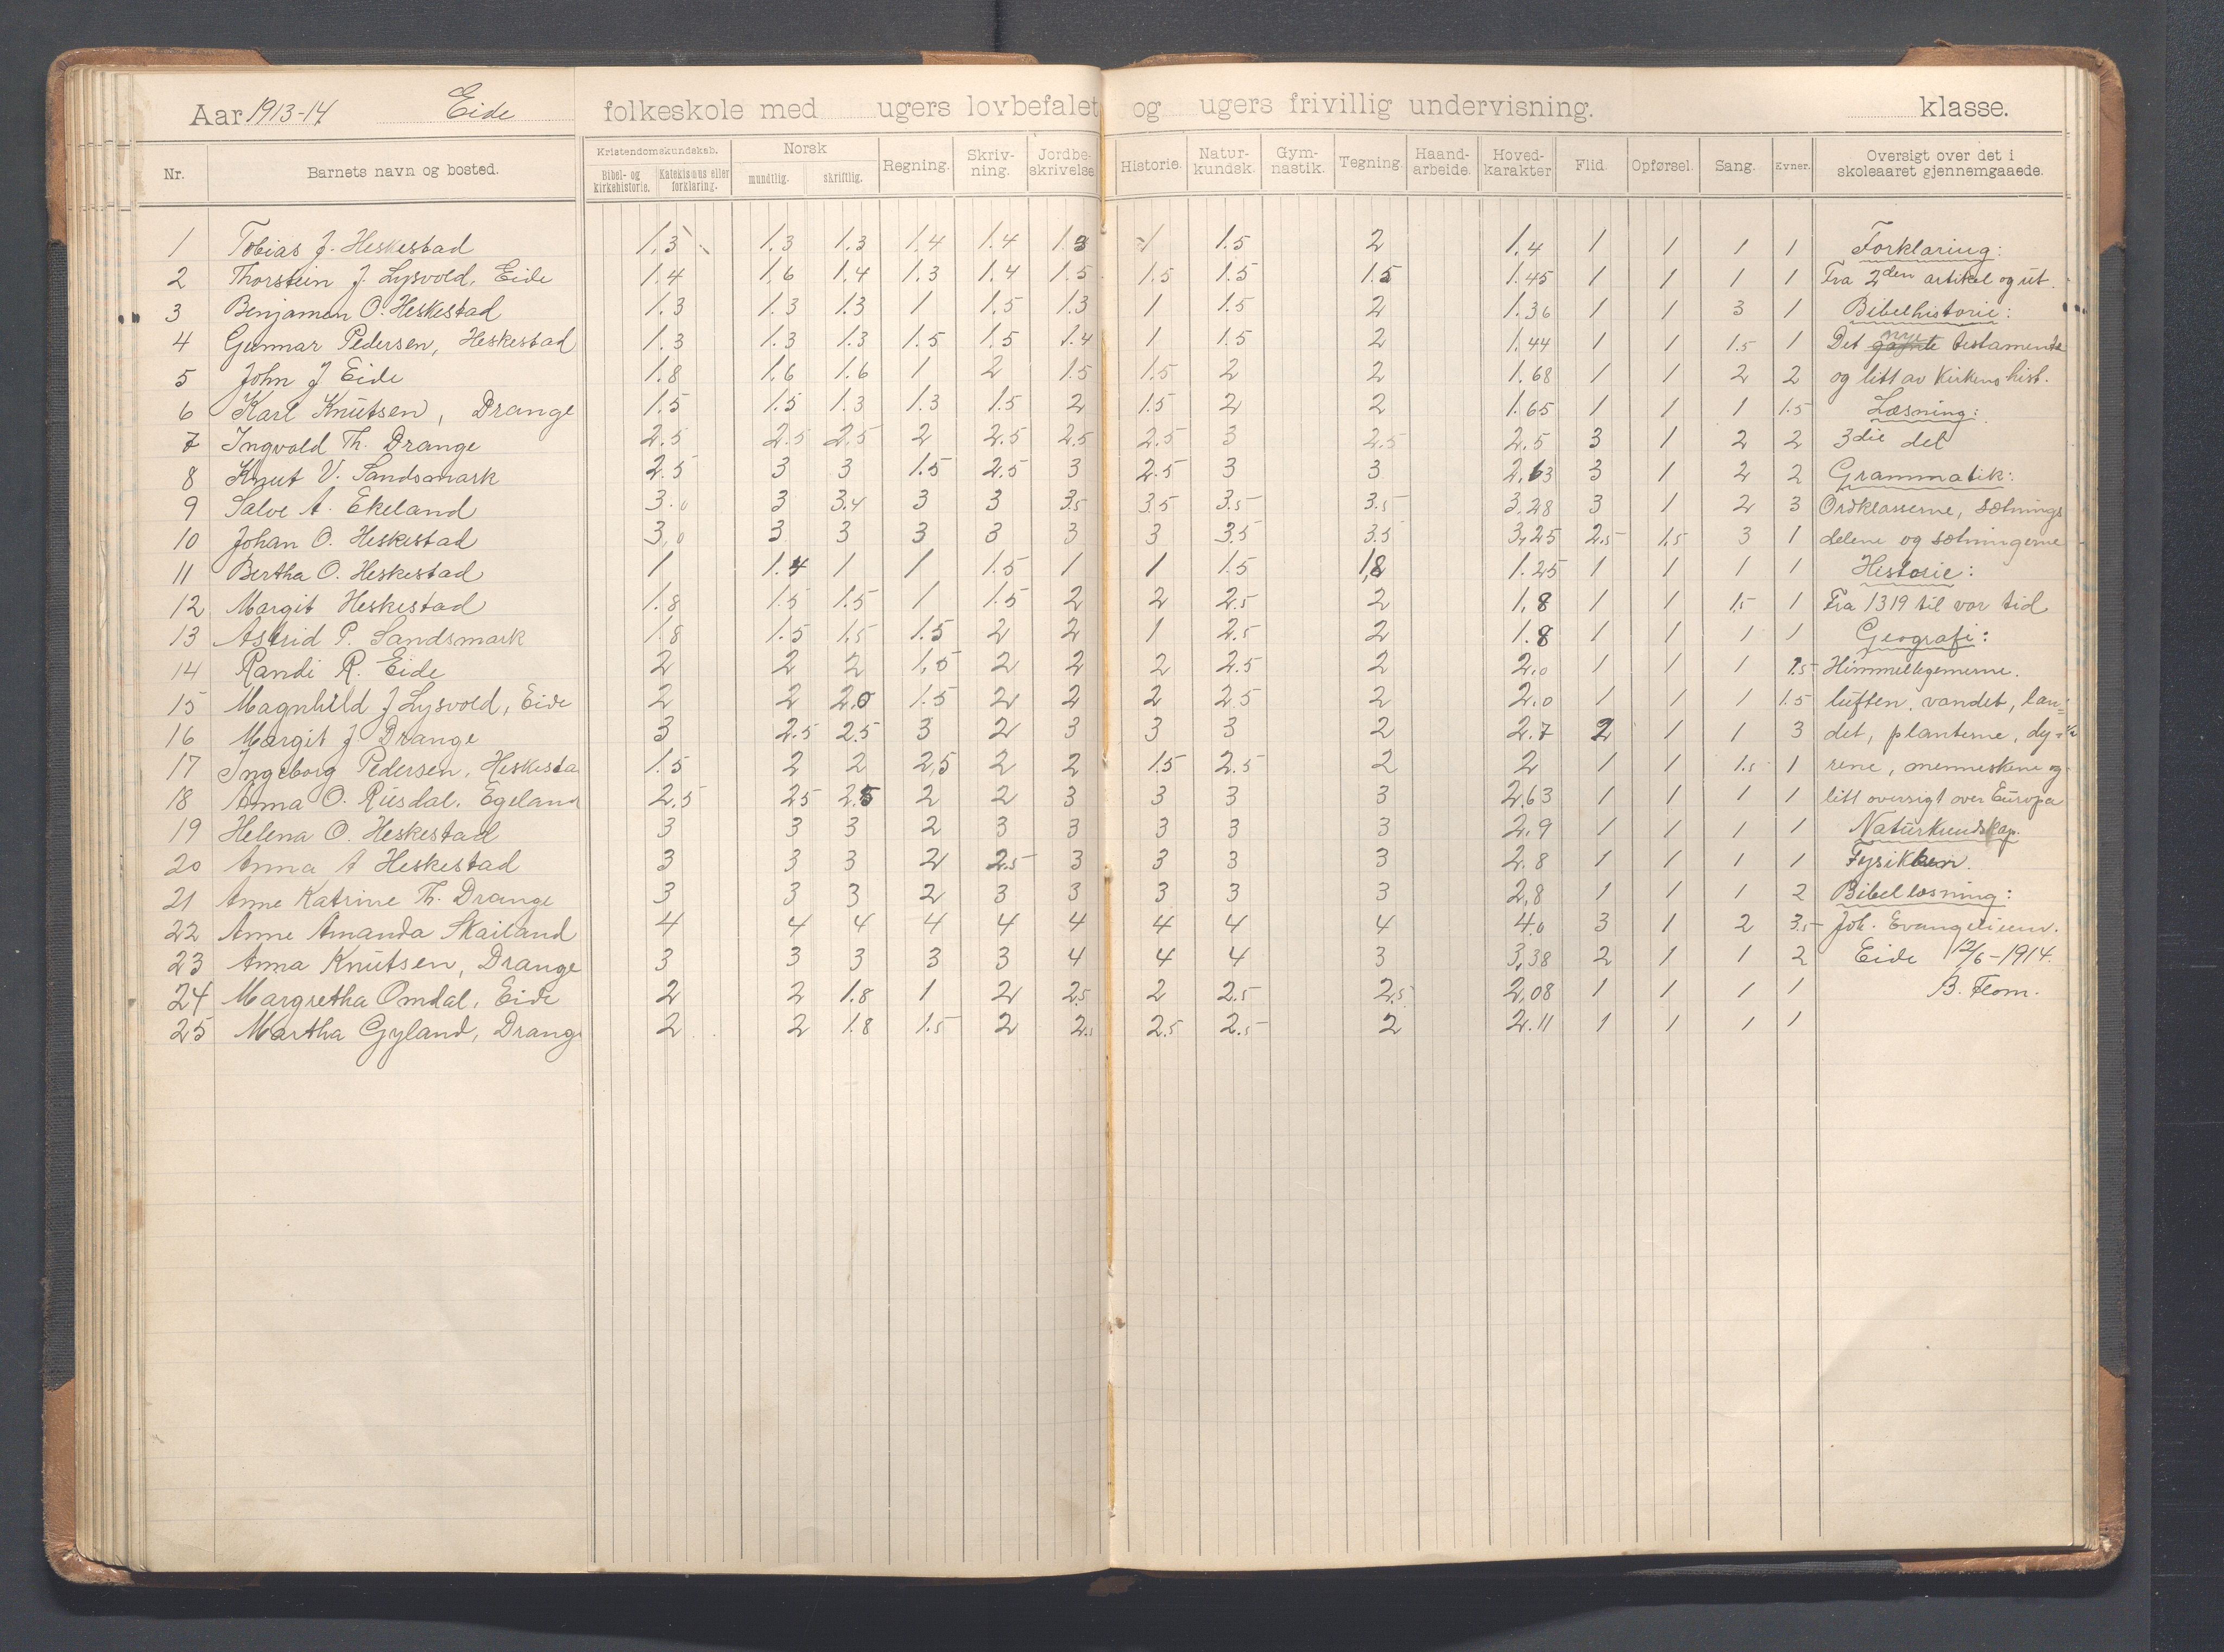 Aar 1913-14 Eide folkeskole med ugers lovbefalet og ugers frivillig undervisning. klasse.
Nr. Barnets navn og bosted. Kristendomskundskab. Bibel- og kirkehistorie. Katekismus eller forklaring. Norsk mundtlig. skriftlig. Regning. Skrivning. Jordbeskrivelse Historie. Naturkundsk. Gymnastik. Tegning. Haandarbeide. Hovedkarakter Flid. Opførsel. Sang. Evner. Oversigt over det i skoleaaret gjennemgaaede.
1 Tobias J. Heskestad 1.3 1.3 1.3 1.4 1.4 1.3 1 1.5 2 1.4 1 1 1 1 Forklaring:
2 Thorstein J. Lysvold, Eide 1.4 1,6 1.4 1.3 1.4 1.5 1.5 1.5 1.5 1.45 1 1 1 1 Fra 2den artikel og ut.
3 Benjamen O. Heskestad 1.3 1.3 1.3 1 1.5 1.3 1 1.5 2 1.36 1 1 3 1 Bibelhistorie:
4 Gunnar Pedersen, Heskestad 1.3 1.3 1.3 1.5 1.5 1.4 1 1.5 2 1.44 1 1 1.5 1 Det nye testamente
5 John J Eide 1.8 1.6 1.6 1 2 1.5 1.5 2 2 1.68 1 1 2 2 og litt av Kirkens hist.
6 Karl Knutsen, Drange 1.5 1.5 1.3 1.3 1.5 2 1.5 2 2 1.65 1 1 1 1.5 Læsning:
7 Ingvald Th. Drange 2.5 2.5 2.5 2 2.5 2.5 2.5 3 2.5 2.5 3 1 2 2 3die del
8 Knut V. Sandsmark 2.5 3 3 1.5 2.5 3 2.5 3 3 2.63 3 1 2 2 Grammatik:
9 Salve A. Ekeland 3.0 3 3.4 3 3 3.5 3.5 3.5 3.5 3.28 3 1 2 3 Ordklasserne, sætnings
10 Johan O. Heskestad 3,0 3 3 3 3 3 3 3.5 3.5 3,25 2.5 1.5 3 1 delene og sætningerne
11 Bertha O. Heskestad 1 1.4 1 1 1.5 1 1 1.5 1,8 1.25 1 1 1 1 Historie:
12 Margit Heskestad 1.8 1.5 1.5 1 1.5 2 2 2.5 2 1,8 1 1 1.5 1 Fra 1319 til vor tid
13 Astrid P. Sandsmark 1.8 1.5 1.5 1.5 2 2 1 2.5 2 1.8 1 1 1 1 Geografi:
14 Randi R. Eide 2 2 2 1,5 2 2 2 2.5 2 2.0 1 1 1 1.5 Himmellegemerne.
15 Magnhild J Lysvold, Eide 2 2 2.0 1.5 2 2 2 2.5 2 2.0 1 1 1 1.5 luften, vandet, lan-
16 Margit J Drange 3 2.5 2.5 3 2 3 3 3 2 2.7 2 1 1 3 det, planterne, dy-
17 Ingeborg Pedersen, Heskesta 1.5 2 2 2,5 2 2 1.5 2.5 2 2 1 1 1.5 1 rene, menneskene og
18 Anna O. Riisdal, Egeland 2.5 2.5 2.5 2 2 3 3 3 3 2.63 1 1 1 1 litt oversigt over Europa
19 Helena O. Heskestad 3 3 3 2 3 3 3 3 3 2.9 1 1 1 1 Naturkundskap.
20 Anna A Heskestad 3 3 3 2 2.5 3 3 3 3 2.8 1 1 1 1 Fysikken.
21 Anne Katrine Th. Drange 3 3 3 2 3 3 3 3 3 2,8 1 1 1 2 Bibellæsning:
22 Anne Amanda Skailand 4 4 4 4 4 4 4 4 4 4.0 3 1 2 3.5 Joh. Evangelium.
23 Anna Knutsen, Drange 3 3 3 3 3 4 4 4 3 3,38 2 1 1 2 Eide 12/6-1914.
24 Margretha Omdal, Eide 2 2 1.8 1 2 2.5 2 2.5 2.5 2,08 1 1 1 1 B. FLom.
25 Martha Gyland, Drange 2 2 1.8 1.5 2 2.5 2.5 2.5 2 2.11 1 1 1 1